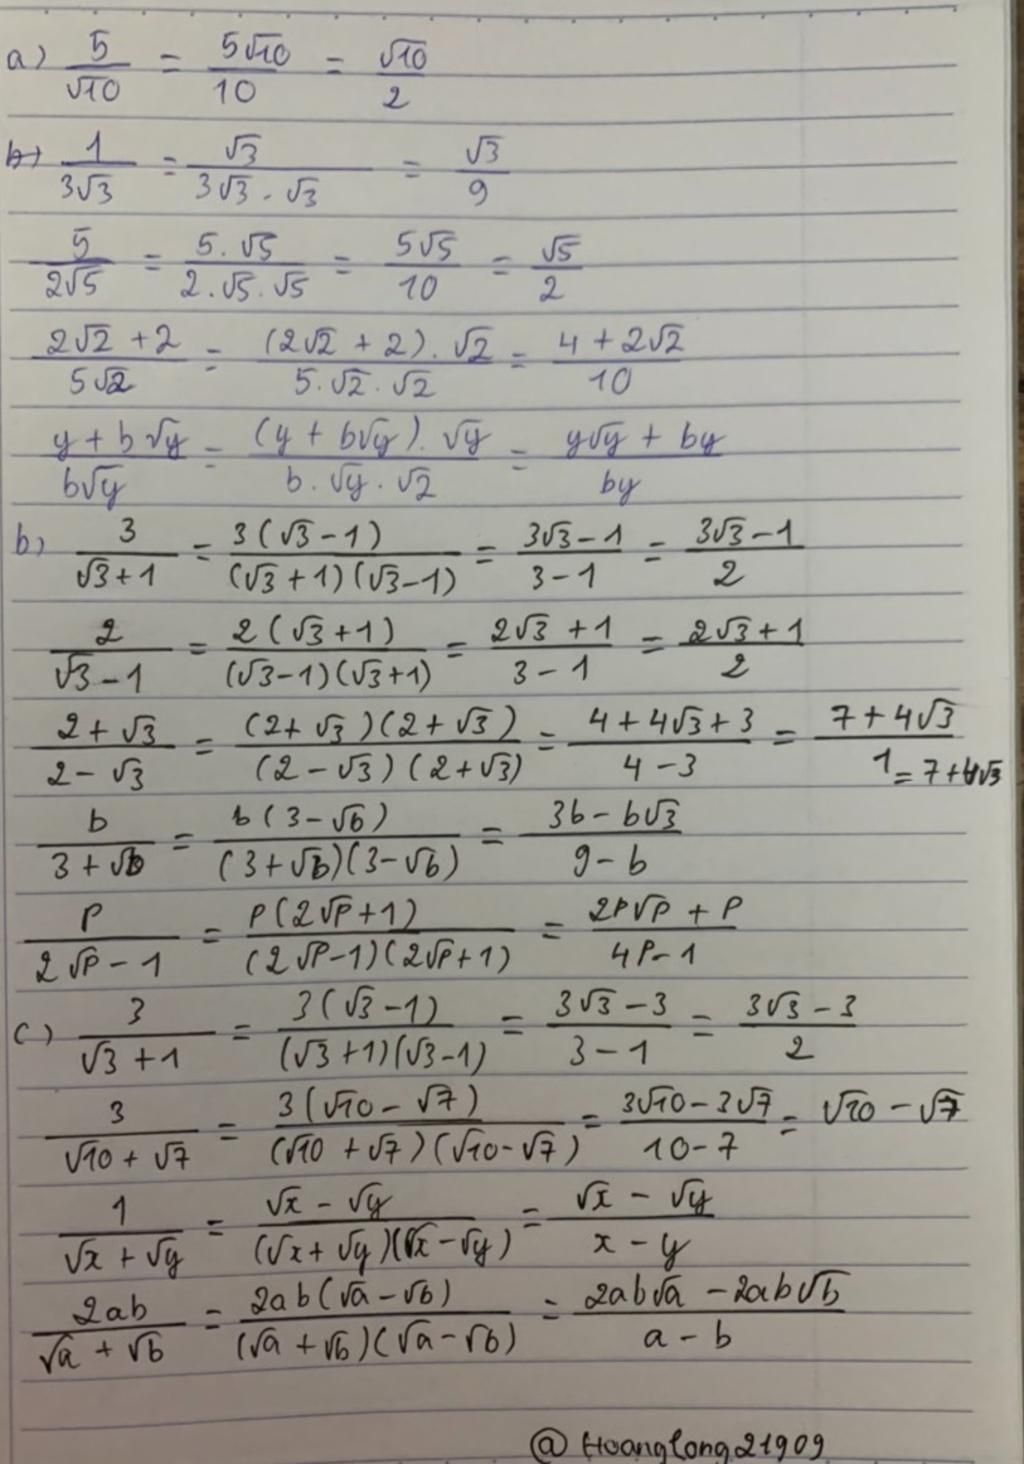 a) 5/√10 = 5√10/10 = √10/2
b) 1/3√3 = √3/3√3 . √3 = √3/9
5/2√5 = 5.√5/2.√5.√5 = 5√5/10 = √5/2
2√2 + 2/5√2 = (2√2 + 2).√2/5.√2.√2 = 4 + 2√2/10
y + b√y/b√y = (y + b√y).√y/b.√y.√2 = y√y + by/by
b) 3/√3+1 = 3(√3-1)/(√3+1)(√3-1) = 3√3-1/3-1 = 3√3-1/2
2/√3-1 = 2(√3+1)/(√3-1)(√3+1) = 2√3+1/3-1 = 2√3+1/2
2+√3/2-√3 = (2+√3)(2+√3)/(2-√3)(2+√3) = 4+4√3+3/4-3 = 7+4√3/1 = 7+4√3
b/3+√b = b(3-√b)/(3+√b)(3-√b) = 3b-b√3/9-b
P/2√P-1 = P(2√P+1)/(2√P-1)(2√P+1) = 2P√P+P/4P-1
c) 3/√3+1 = 3(√3-1)/(√3+1)(√3-1) = 3√3-3/3-1 = 3√3-3/2
3/√10+√7 = 3(√10-√7)/(√10+√7)(√10-√7) = 3√10-3√7/10-7 = √10-√7
1/√x+√y = √x-√y/(√x+√y)(√x-√y) = √x-√y/x-y
2ab/√a+√b = 2ab(√a-√b)/(√a+√b)(√a-√b) = 2ab√a-2ab√b/a-b
@Hoanglong21909